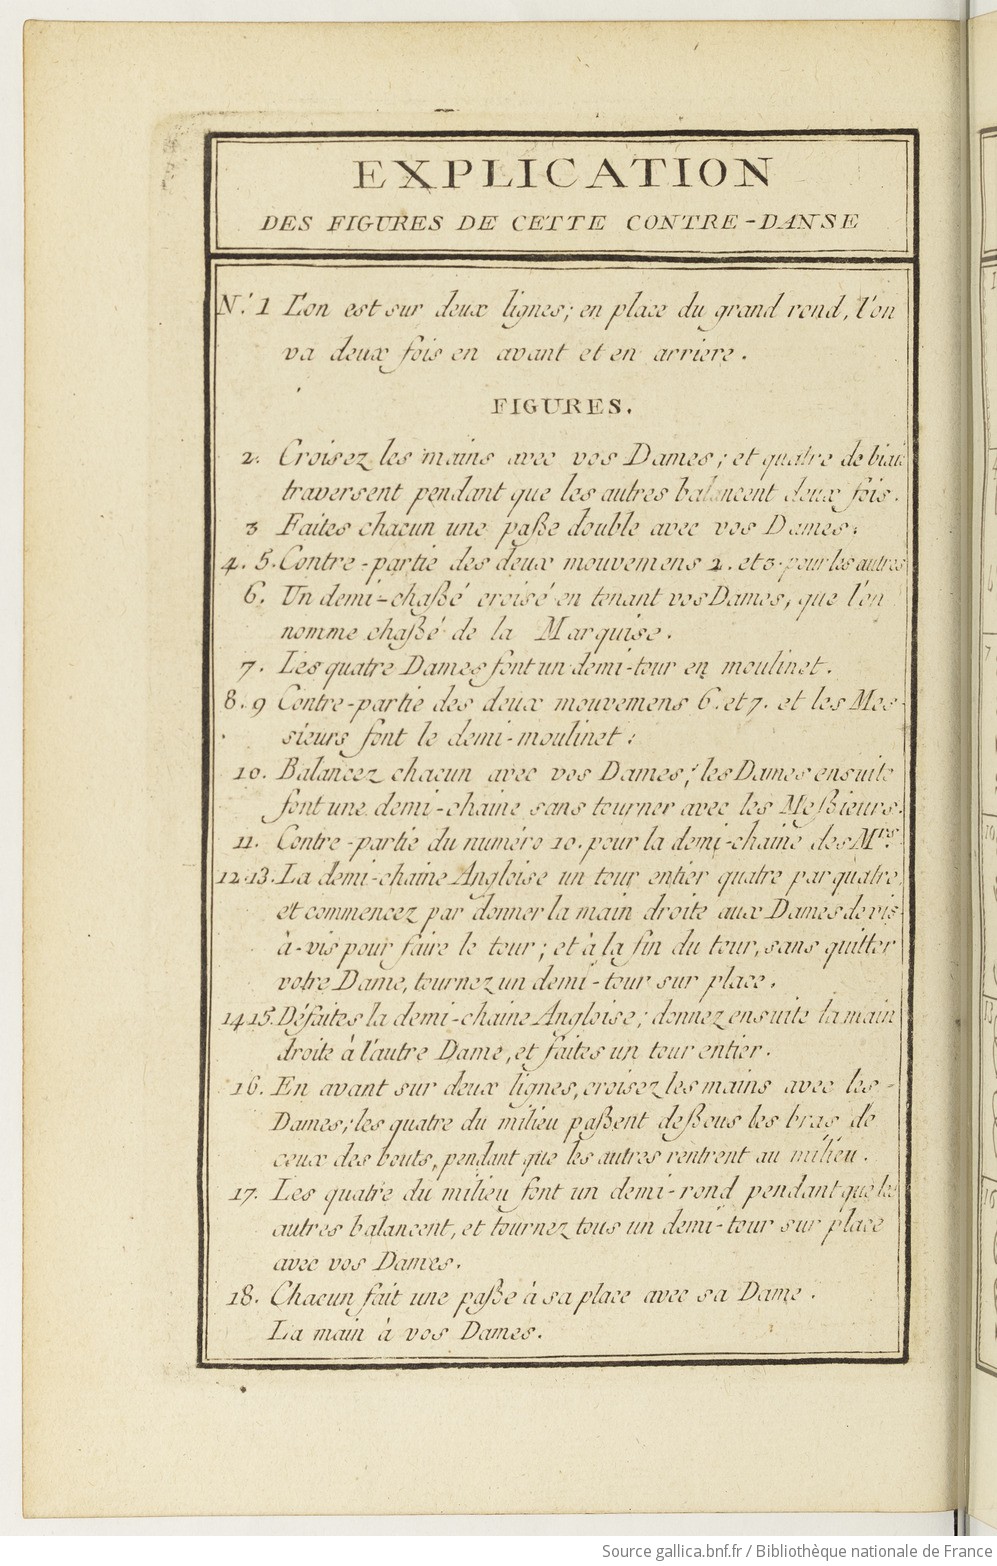 EXPLICATION
DES FIGURES DE CETTE CONTRE-DANSE
N.º 1 L'on est sur deux lignes; en place du grand rond, l'on
va deux fois en avant et en arriere.
FIGURES.
2. Croisez les mains avec vos Dames; et quatre de biais
traversent pendant que les autres balancent deux fois.
3 Faites chacun une paße double avec vos Dames.
4. 5. Contre-partie des deux mouvemens 2. et 3. pour les autres
6. Un demi-chaßé croisé en tenant vos Dames, que l'on
nomme chaßé de la Marquise.
7. Les quatre Dames font un demi-tour en moulinet.
8. 9 Contre-partie des deux mouvemens 6. et 7. et les Mes-
sieurs font le demi-moulinet.
10. Balancez chacun avec vos Dames; les Dames ensuite
font une demi-chaine sans tourner avec les Meßieurs.
11. Contre-partie du numéro 10. pour la demi-chaine des M.rs
12.13. La demi-chaine Angloise un tour entier quatre par quatre,
et commencez par donner la main droite aux Dames de vis-
à-vis pour faire le tour; et à la fin du tour, sans quitter
votre Dame, tournez un demi-tour sur place.
14.15. Défaites la demi-chaine Angloise; donnez ensuite la main
droite à l'autre Dame, et faites un tour entier.
16. En avant sur deux lignes, croisez les mains avec les -
Dames; les quatre du milieu paßent deßous les bras de
ceux des bouts, pendant que les autres rentrent au milieu.
17. Les quatre du milieu font un demi-rond pendant que les
autres balancent, et tournez tous un demi-tour sur place
avec vos Dames.
18. Chacun fait une paße à sa place avec sa Dame.
La main à vos Dames.
Source gallica.bnf.fr / Bibliothèque nationale de France